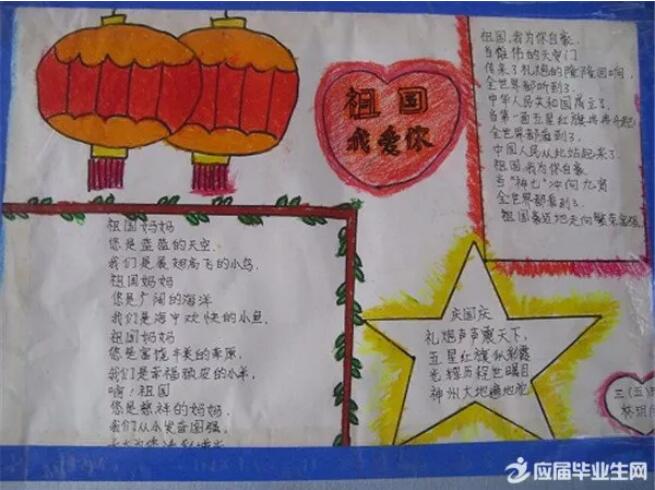 祖国
我爱你
祖国,我为你自豪.
当雄伟的天安门
传来了礼炮的隆隆回响,
全世界都听到了.
中华人民共和国成立了.
当第一面五星红旗冉冉升起
全世界都看到了.
中国人民从此站起来了.
祖国,我为你自豪
当"神七"冲向九霄
全世界都看到了.
祖国豪迈地走向繁荣富强
祖国妈妈
您是蓝蓝的天空.
我们是展翅高飞的小鸟.
祖国妈妈
您是广阔的海洋
我们是海中欢快的小鱼.
祖国妈妈
您是富饶丰美的草原.
我们是幸福顽皮的小羊.
啊!祖国
您是慈祥的妈妈.
我们从小发奋图强.
庆国庆
礼炮声声震天下,
五星红旗似彩霞
光辉历程世瞩目
神州大地遍地花
三(五)
林玥
应届毕业生网